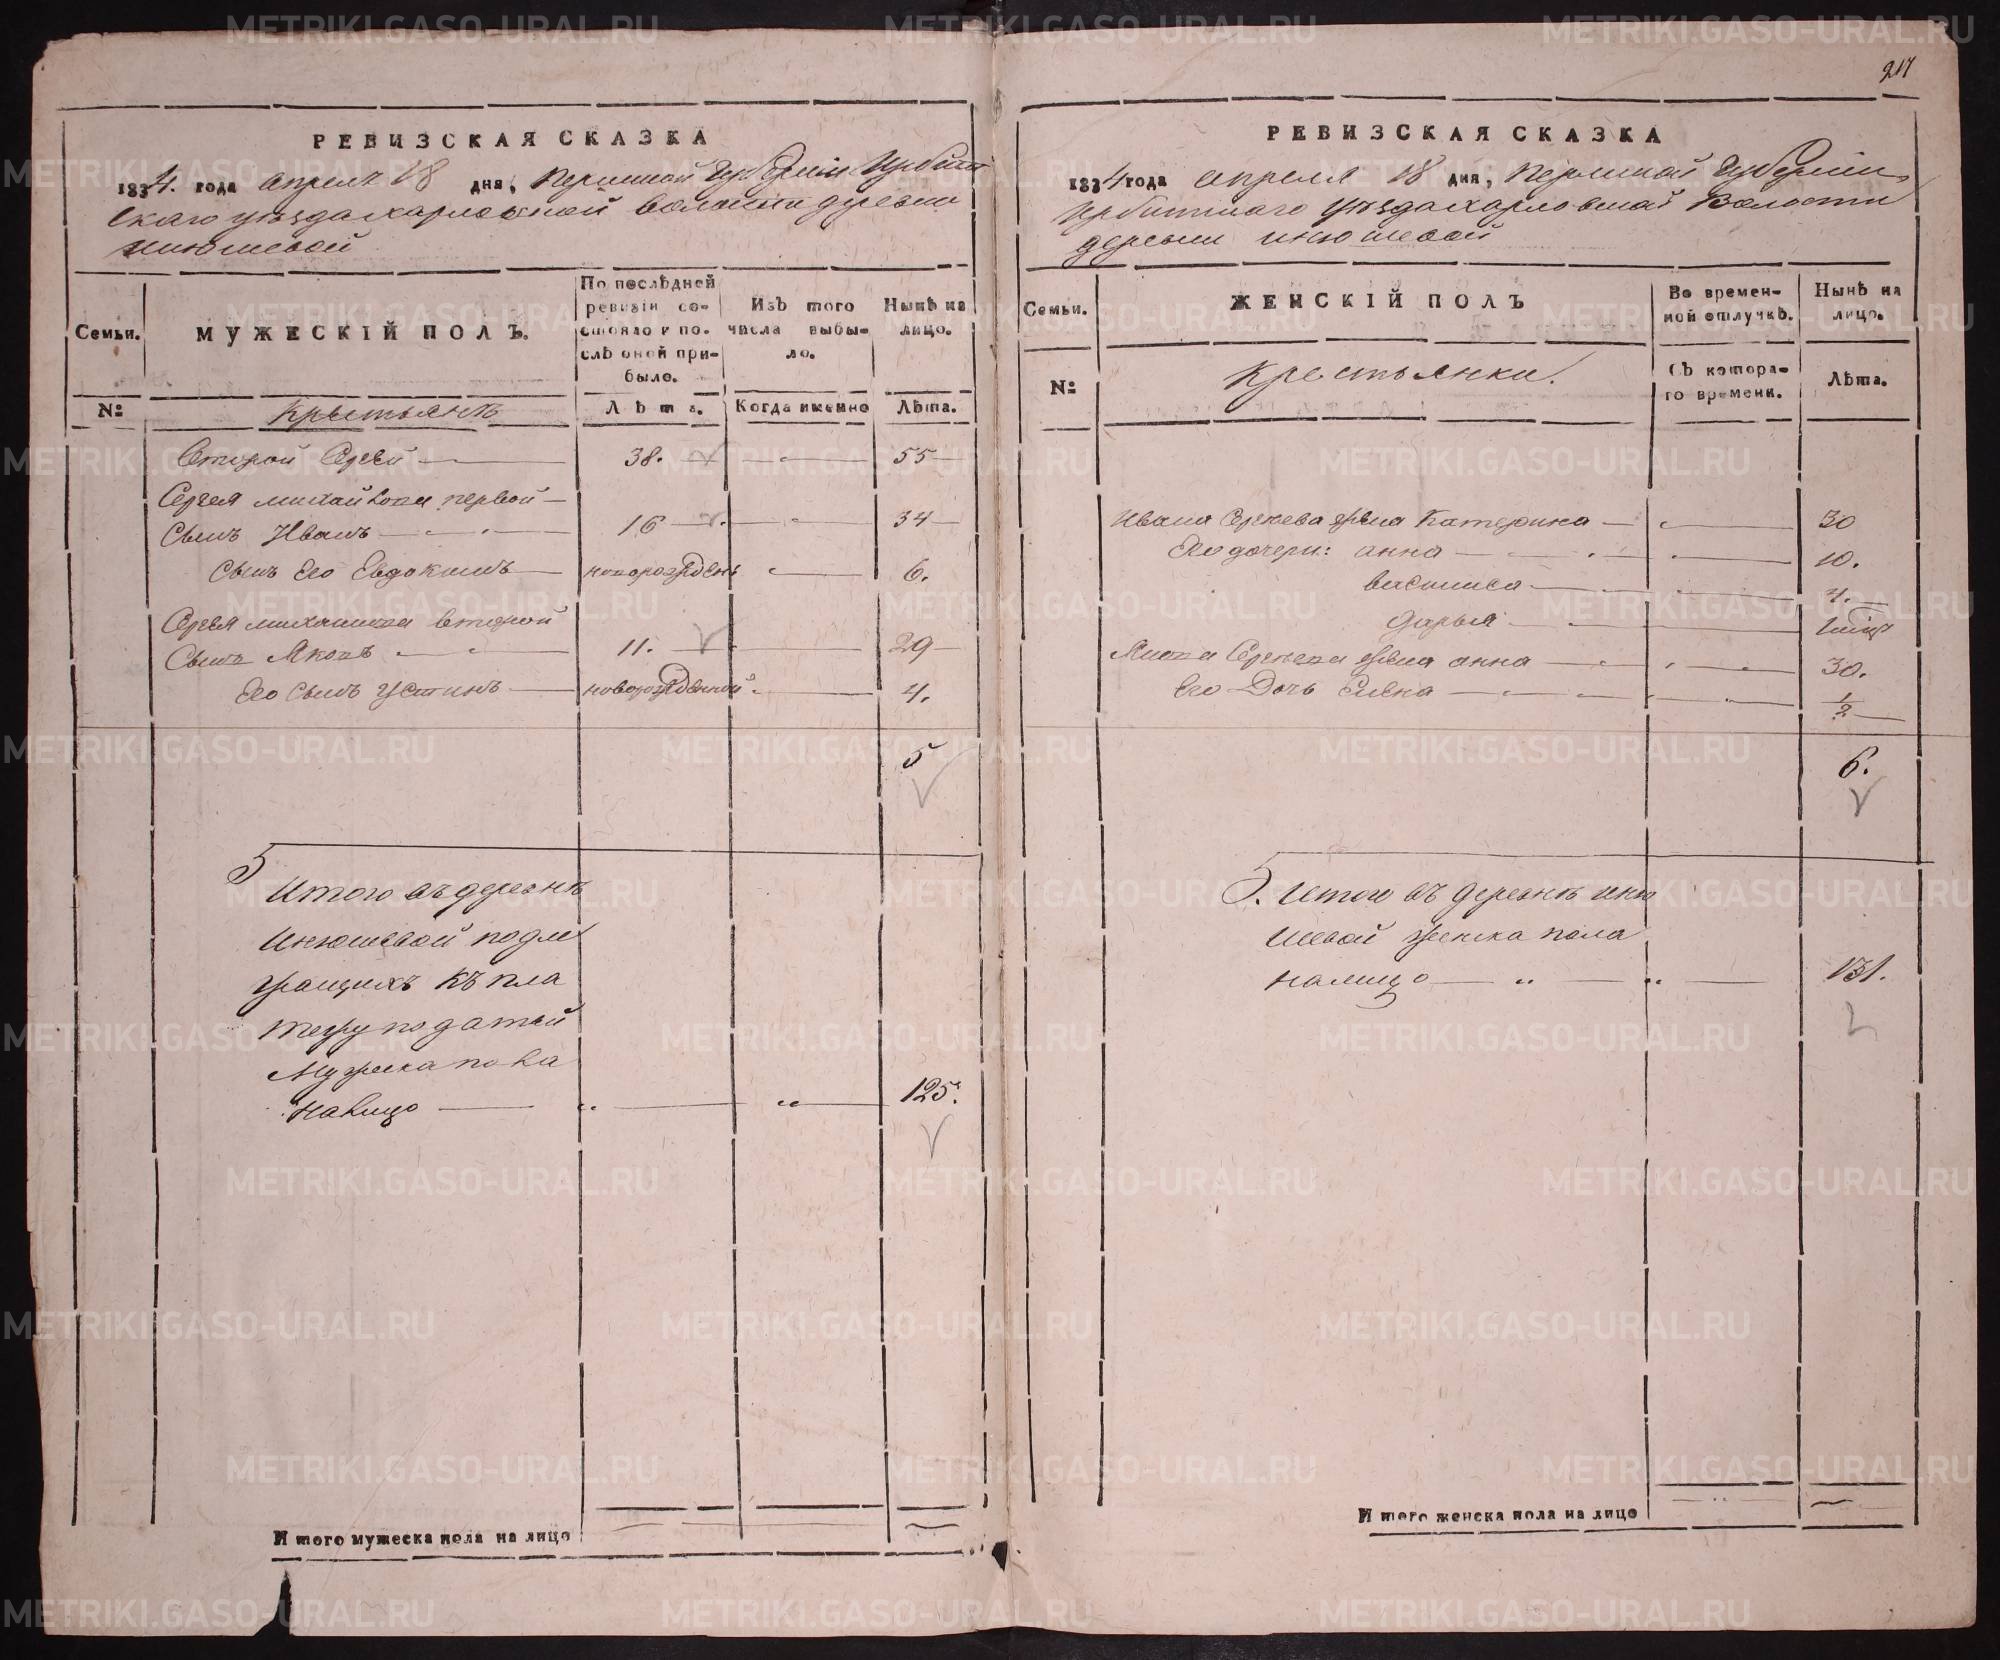 217
РЕВИЗСКАЯ СКАЗКА
1834. года апрель 18 дня, Пермской Губернии Ирбит
скаго уезда харловской волости деревни
инюшевой
Семьи.
МУЖЕСКІЙ ПОЛЪ.
По послѣдней ревизіи состояло и послѣ оной прибыло.
Изъ того числа выбыло.
Нынѣ на лицо.
№
Крестьянъ
Лѣта.
Когда именно
Лѣта.
Второй Сергей 38. 55
Сергея михайлова первой
Сынъ Иванъ 16 34
Сынъ Его Евдокимъ новорожденъ 6.
Сергея михайлова второй
Сынъ Яковъ 11. 29
Его сынъ Устинъ новорожденной 4.
5
5
Итого въ деревнѣ
Инюшевой подле
жащихъ къ пла
тежу податей
Мужеска пола
налицо 125.
Итого мужеска пола на лицо
РЕВИЗСКАЯ СКАЗКА
1834 года апреля 18 дня, Пермской Губернии,
Ирбитскаго уезда харловской Волости
деревни инюшевой
Семьи.
ЖЕНСКІЙ ПОЛЪ
Во временной отлучкѣ.
Нынѣ на лицо.
№
Крестьянки.
Съ котораго времени.
Лѣта.
Ивана Сергеева жена Катерина 30
Его дочери: анна 10.
василиса 4.
дарья
Якова Сергеева жена анна 30.
Его Дочь Елена 1/2
6.
5. Итого въ деревнѣ иню
шевой женска пола
налицо 131.
Итого женска пола на лицо
METRIKI.GASO-URAL.RU